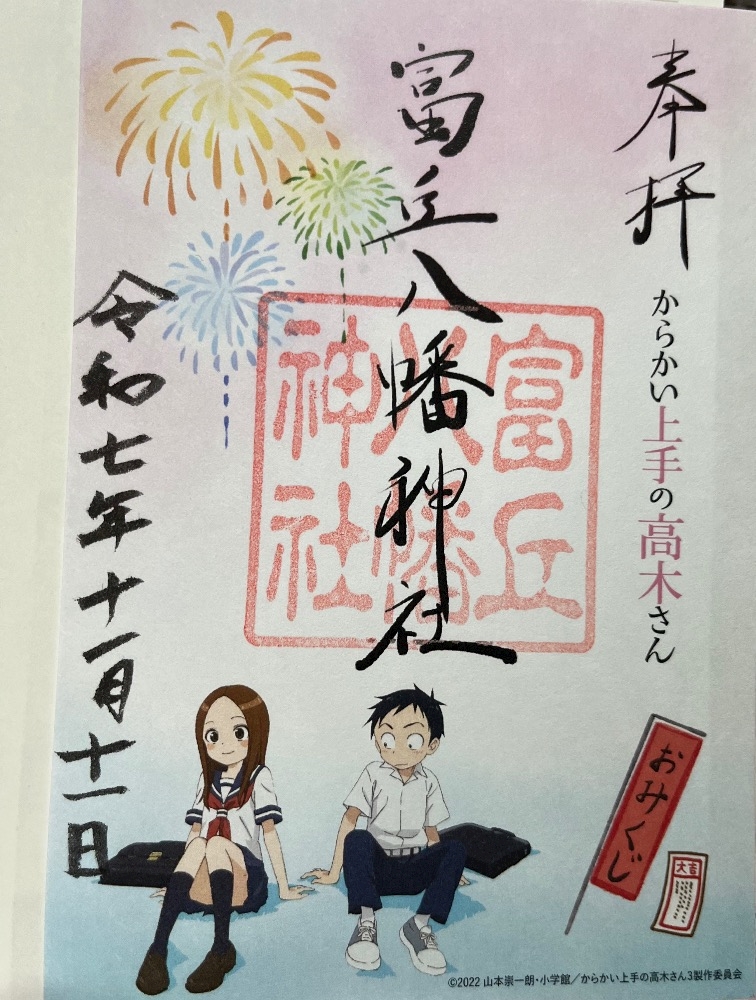 奉拝
からかい上手の高木さん
富丘八幡神社
富丘
八幡
神社
令和七年十一月十一日
おみくじ
大吉
©2022 山本崇一朗・小学館／からかい上手の高木さん3製作委員会